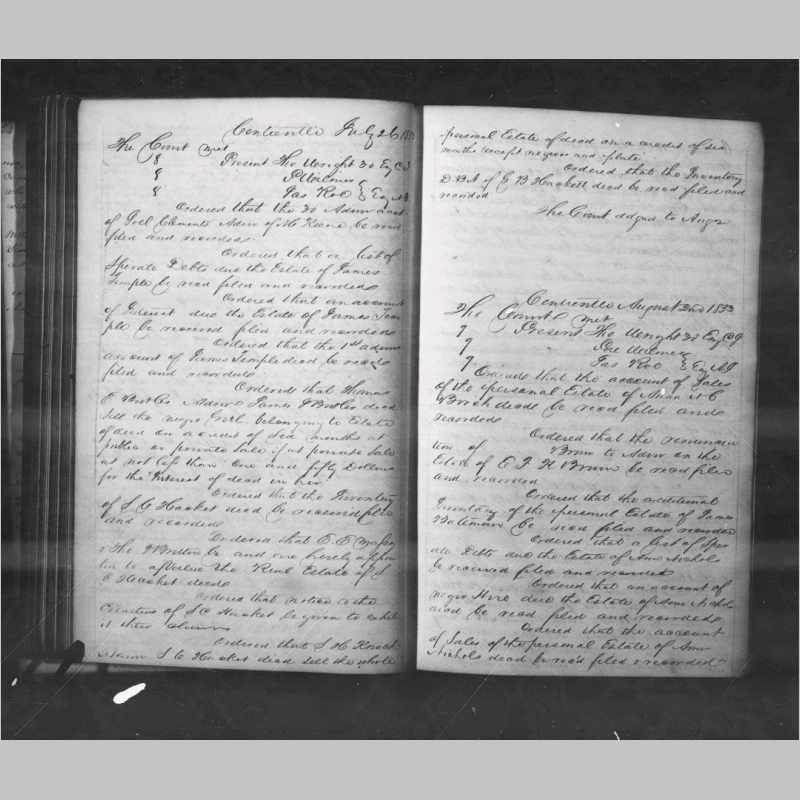 Centreville July 26 183
The Court met
Present Tho Wright 3d Esq C J
P Wilmer
Jas Roe } Esq A J
Ordered that the 3d Admr Acct
of Joel Clements Admr of H Keene be read
filed and recorded
Ordered that a list of
Sperate Debts due the Estate of James
Temple be read filed and recorded
Ordered that an account
of Interest due the Estate of James Tem
ple be received filed and recorded
Ordered that the 1st admn
account of James Temple dead be read
filed and recorded
Ordered that Thomas
Butler Admr James Butler dead
sell the negro Girl belonging to Estate
of dead on a credit of six months at
public or private sale if at private sale
at not less than one and fifty Dollars
for the Interest of dead in her
Ordered that the Inventory
of S C Hacket dead be received filed
and recorded
Ordered that E E
Tho be and are hereby appoin
ted to the Real Estate of S
C Hacket dead
Ordered that notice to the
Creditors of S C Hacket be given to exhibit
their claims
Ordered that S H
Admr S C Hacket dead sell the whole
personal Estate of dead on a credit of six
months except negroes and plate
Ordered that the Inventory
D B of C B Hackett dead be read filed and
recorded
The Court adjd to Augt 2
Centreville August 2nd 1833
The Court met
Present Tho Wright 3d Esq C J
P Wilmer
Jas Roe } Esq A J
Ordered that the account of Sales
of the personal Estate of Anna M C
dead be read filed and
recorded
Ordered that the renuncia
tion of Brown to Admr on the
Estate of E F H Brown be read filed
and recorded
Ordered that the additional
Inventory of the personal Estate of James
Bateman be read filed and recorded
Ordered that a list of Sper
ate Debts due the Estate of Ann Nichols
be received filed and recorded
Ordered that an account of
negro Hire due the Estate of Ann Nichols
dead be read filed and recorded
Ordered that the account
of Sales of the personal Estate of Ann
Nichols dead be recd filed & recorded